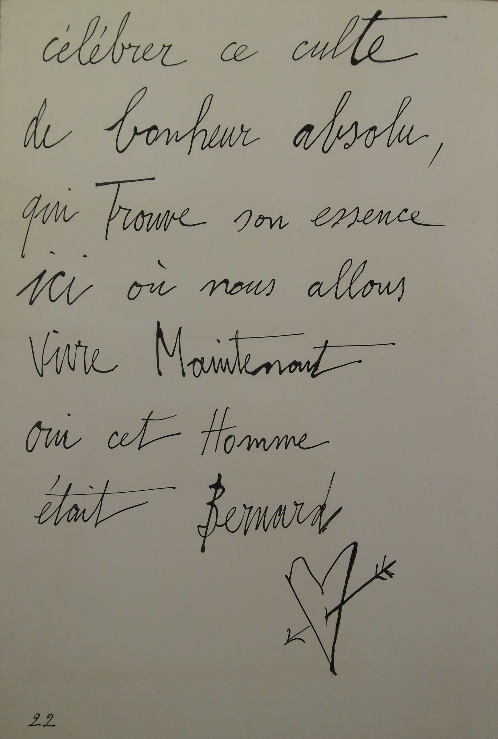 célébrer ce culte
de bonheur absolu,
qui Trouve son essence
ici où nous allons
Vivre Maintenant
oui cet Homme
était Bernard
22